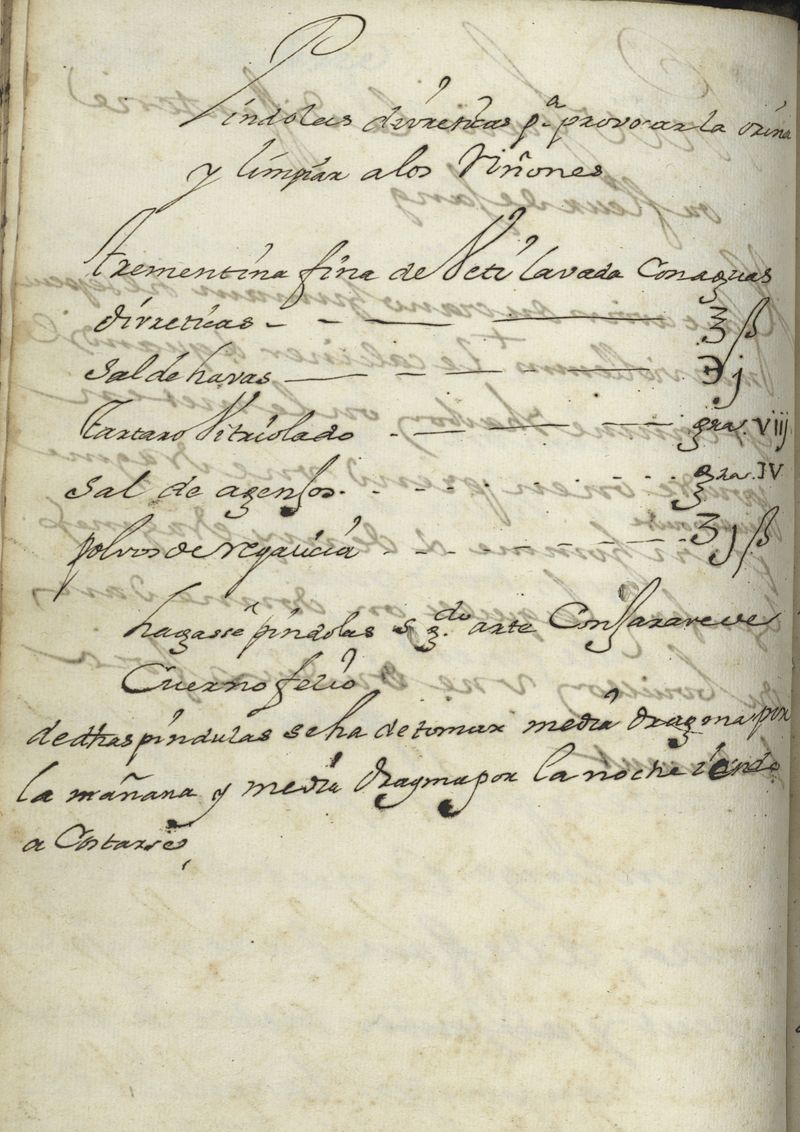 Pindolas divreticas p.a provocar la orina
y limpiar a los Riñones
trementina fina de Veti lavada Con aguas
divreticas ʒ ß
Sal de havas ℈ j
Tartaro Vitriolado gra. viij
Sal de agensos gra. IV
polvos de regalicia ʒ j ß
hagasse pindolas sg.do arte Con Jarave de
Cuerno
de dhas pindulas se ha de tomar media dragma por
la mañana y media dragma por la noche iendo
a Costarse